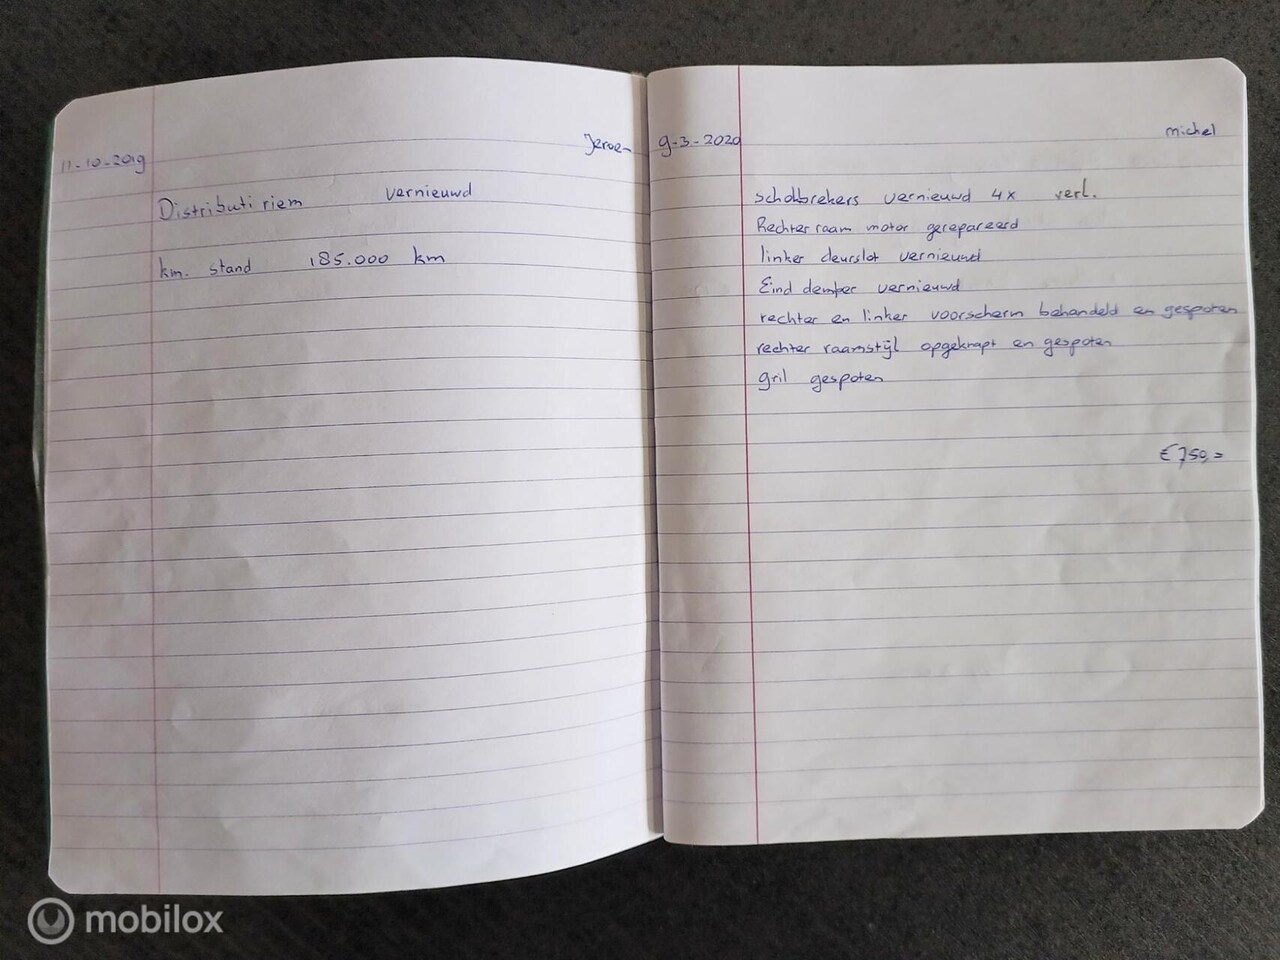 11-10-2019 Jeroen
Distributi riem vernieuwd
km. stand 185.000 km
9-3-2020 michel
Schokbrekers vernieuwd 4x verl.
Rechter raam motor gerepareerd
linker deurslot vernieuwd
Eind demper vernieuwd
rechter en linker voorscherm behandeld en gespoten
rechter raamstijl opgeknapt en gespoten
gril gespoten
€ 750,=
mobilox